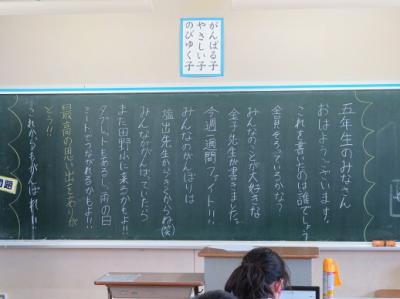 がんばる子
やさしい子
のびゆく子
五年生のみなさん
おはようございます。
これを書いたのは誰でしょう
全員そろっているかな?
みんなのことが大好きな
金子先生が書きました。
今週一週間ファイト!!
みんなのがんばりは
塩出先生からきくからね(笑)
みんながんばっていたら
また田野小に来るかもよ!!
タブレットもあるし、雨の日
ミートでつながれるかもよ!!
最高の思い出をありが
とう!!
これからもがんばれ!!